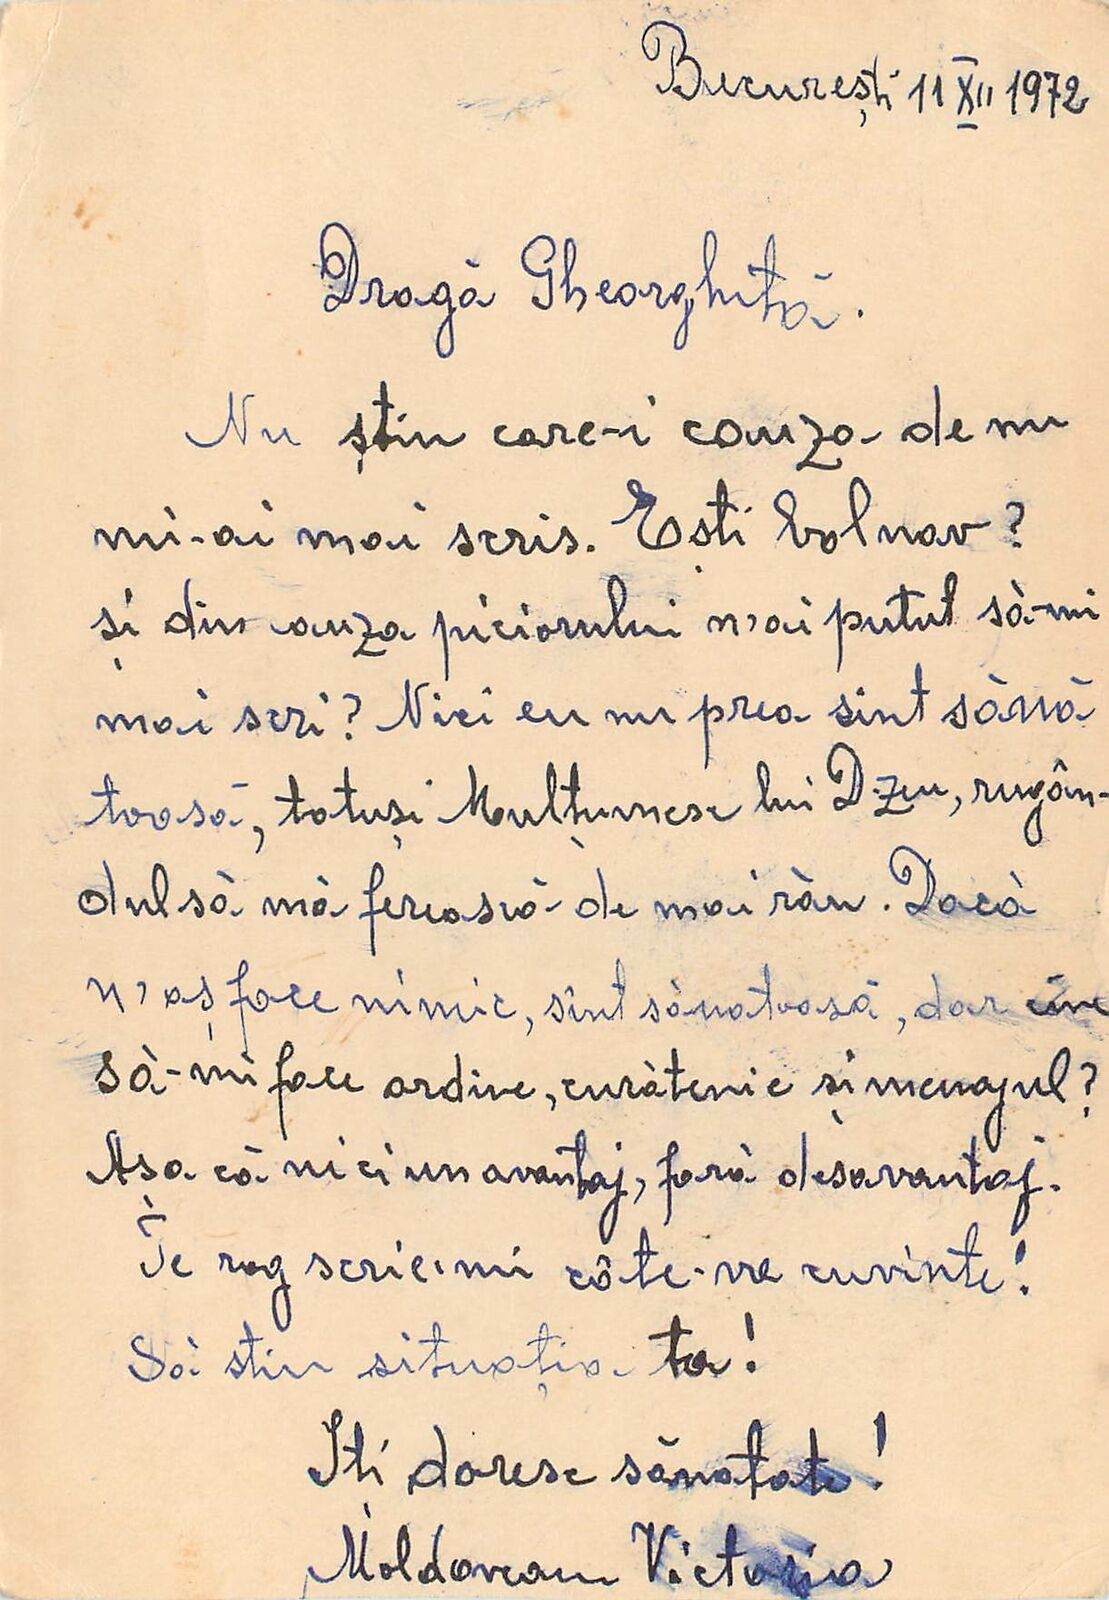 București 11 XII 1972
Dragă Gheorghită.
Nu știu care-i couza de nu
mi-ai mai scris. Ești bolnav?
și din cauza piciorului n'ai putut să-mi
mai scri? Nici eu nu prea sint sănă
toasă, totuși Mulțumesc lui D-zeu, rugân-
dul să mă ferească de mai rău. Dacă
n'aș face nimic, sînt sănatoasă, dar cine
să-mi face ordine, curătenie și menajul?
Așa că nici un avantaj, fară desavantaj.
Te rog scrie-mi câte-va cuvinte!
Să stiu situația ta!
Iți doresc sănatate!
Moldovean Victoria